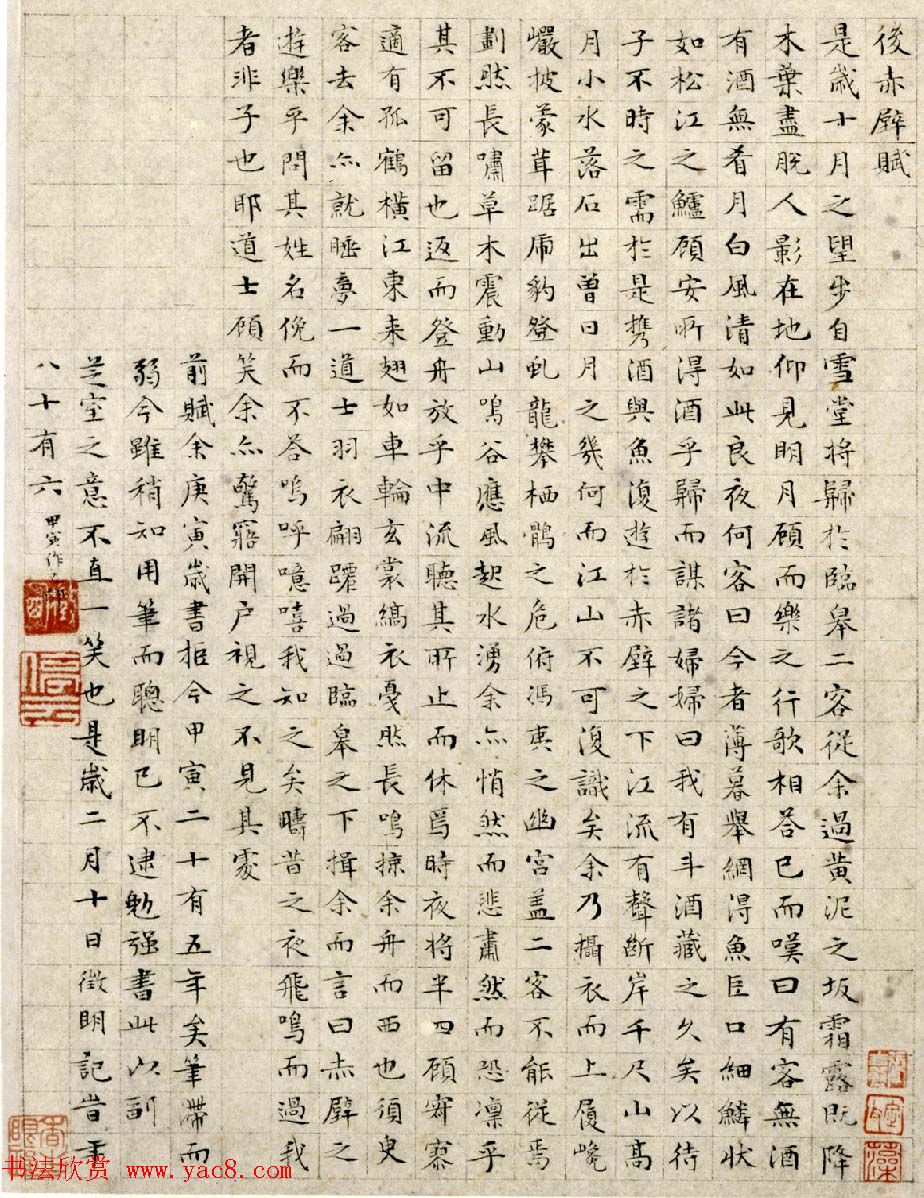 後赤壁賦
是歲十月之望步自雪堂將歸於臨皋二客從余過黃泥之坂霜露既降
木葉盡脫人影在地仰見明月顧而樂之行歌相答已而嘆曰有客無酒
有酒無肴月白風清如此良夜何客曰今者薄暮舉網得魚巨口細鱗狀
如松江之鱸顧安所得酒乎歸而謀諸婦婦曰我有斗酒藏之久矣以待
子不時之需於是携酒與魚復遊於赤壁之下江流有聲斷岸千尺山高
月小水落石出曾日月之幾何而江山不可復識矣余乃攝衣而上履巉
巖披蒙茸踞虎豹登虬龍攀栖鶻之危俯馮夷之幽宮蓋二客不能從焉
劃然長嘯草木震動山鳴谷應風起水湧余亦悄然而悲肅然而恐凜乎
其不可留也返而登舟放乎中流聽其所止而休焉時夜將半四顧寂寥
適有孤鶴橫江東来翅如車輪玄裳縞衣戛然長鳴掠余舟而西也須臾
客去余亦就睡夢一道士羽衣翩躚過過臨皋之下揖余而言曰赤壁之
遊樂乎問其姓名俛而不答嗚呼噫嘻我知之矣疇昔之夜飛鳴而過我
者非子也耶道士顧笑余亦驚寤開戶視之不見其處
前賦余庚寅歲書拒今甲寅二十有五年矣筆滯而
弱今雖稍知用筆而聰明已不逮勉强書此以副
芝室之意不直一笑也是歲二月十日徵明記昔年
八十有六
甲寅作
书法欣赏 www.yac8.com